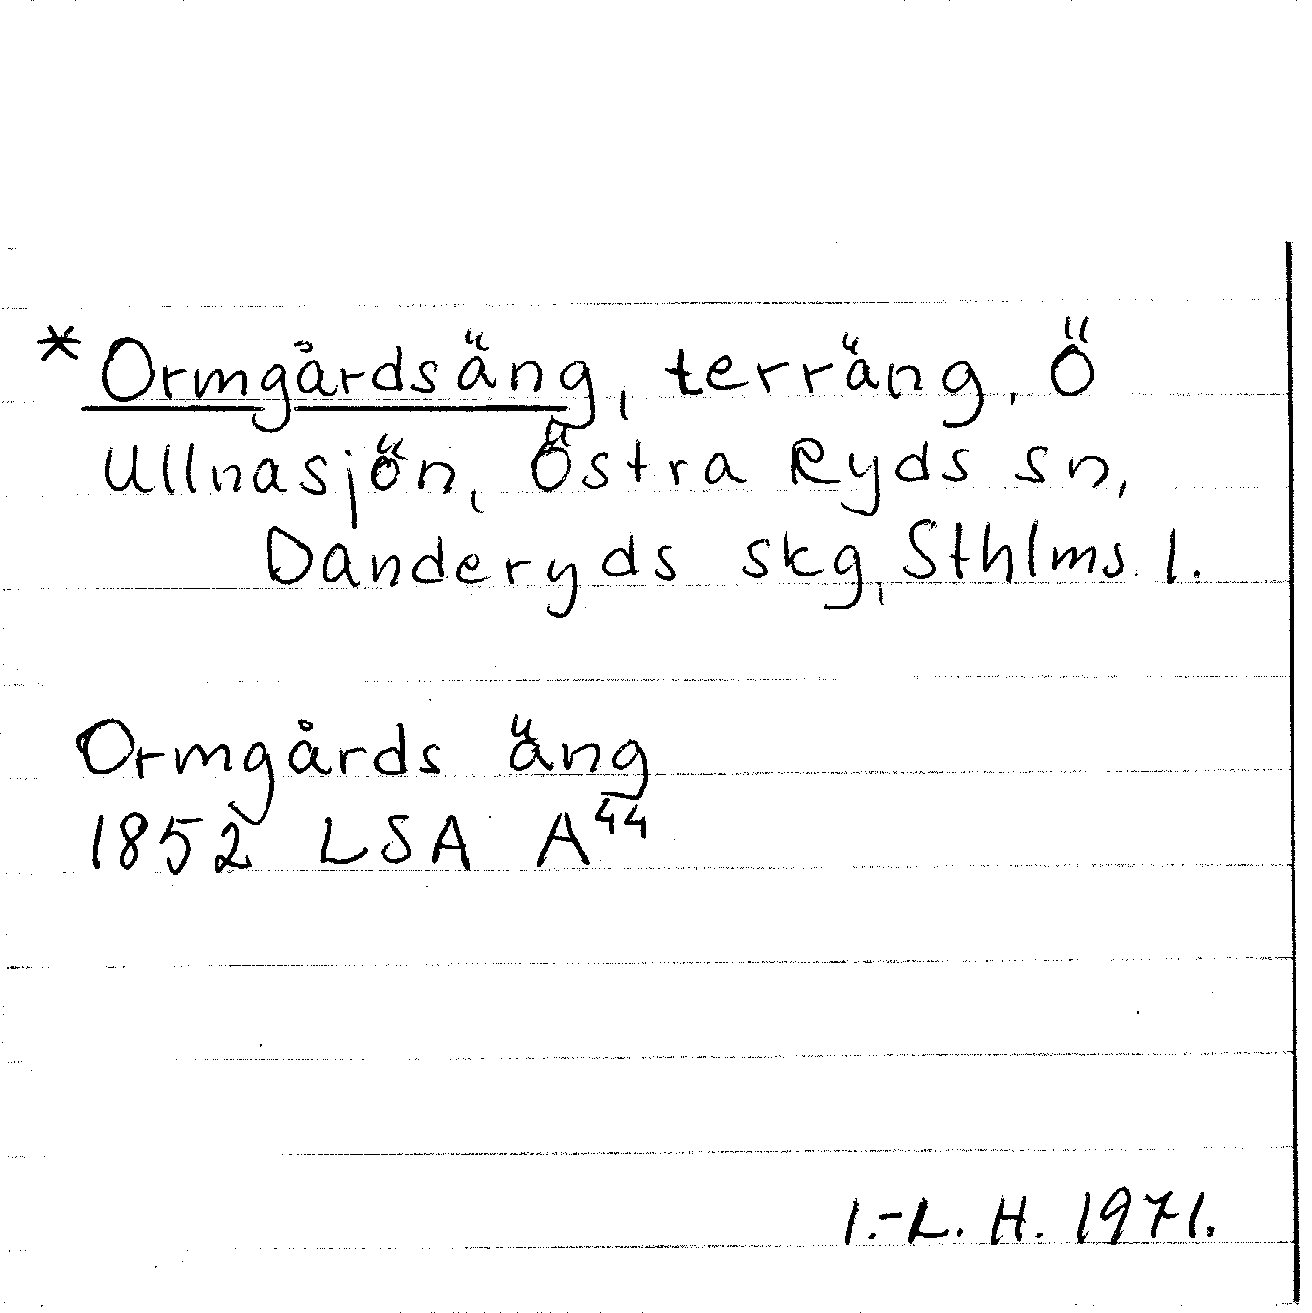 *Ormgårdsäng, terräng, Ö
Ullnasjön, Östra Ryds sn,
Danderyds skg, Sthlms l.
Ormgårds äng
1852 LSA A44
I.-L. H. 1971.